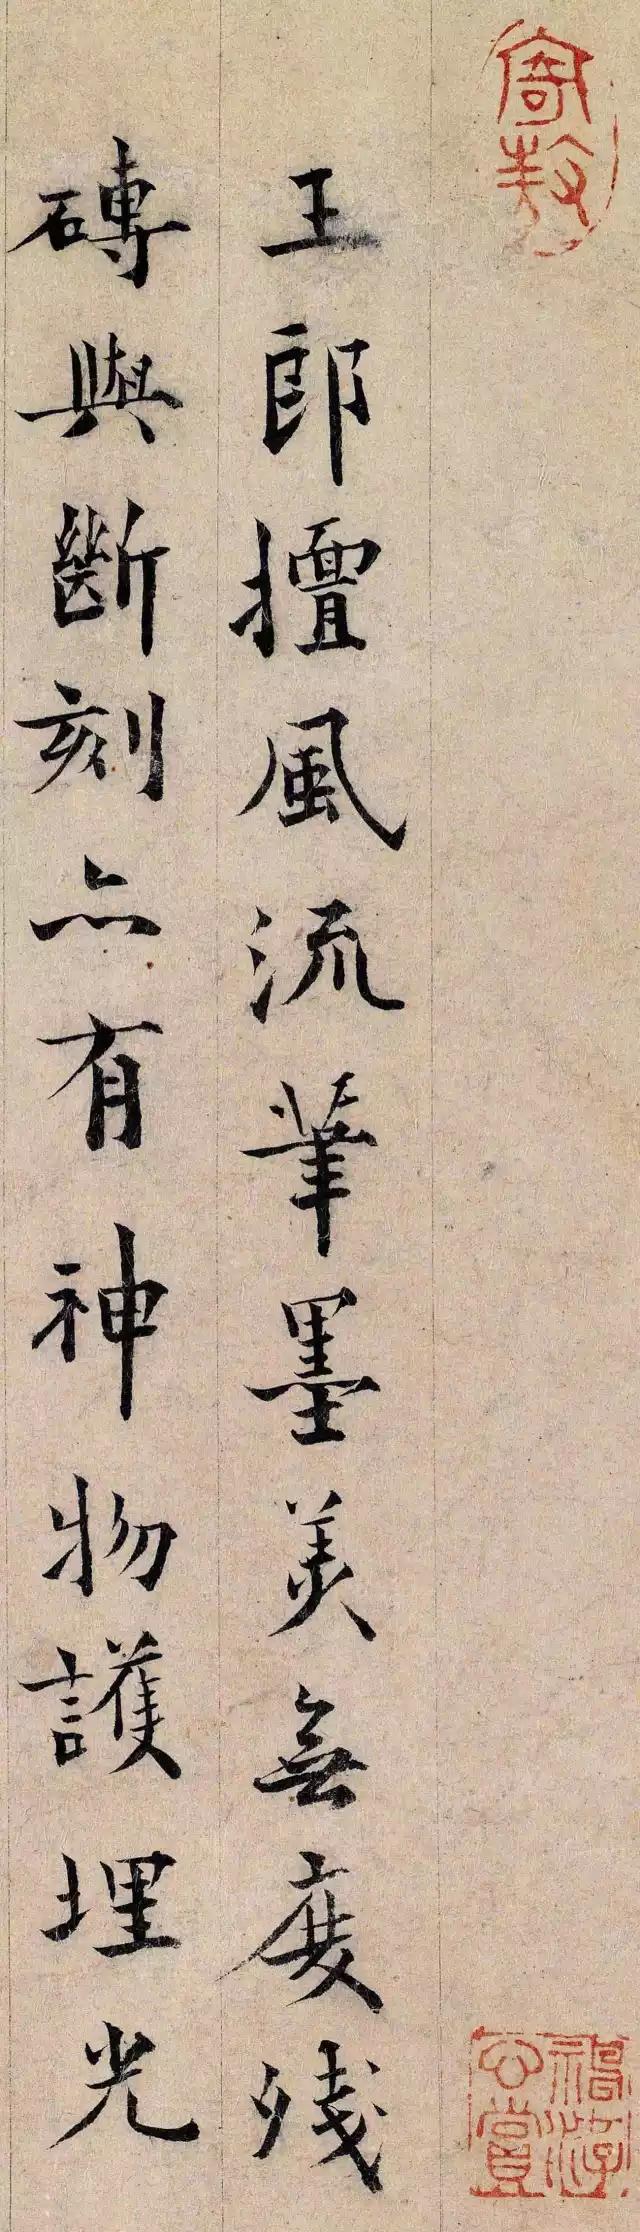 寄敖
王郎擅風流筆墨美無度残
磚與斷刻亦有神物護埋光